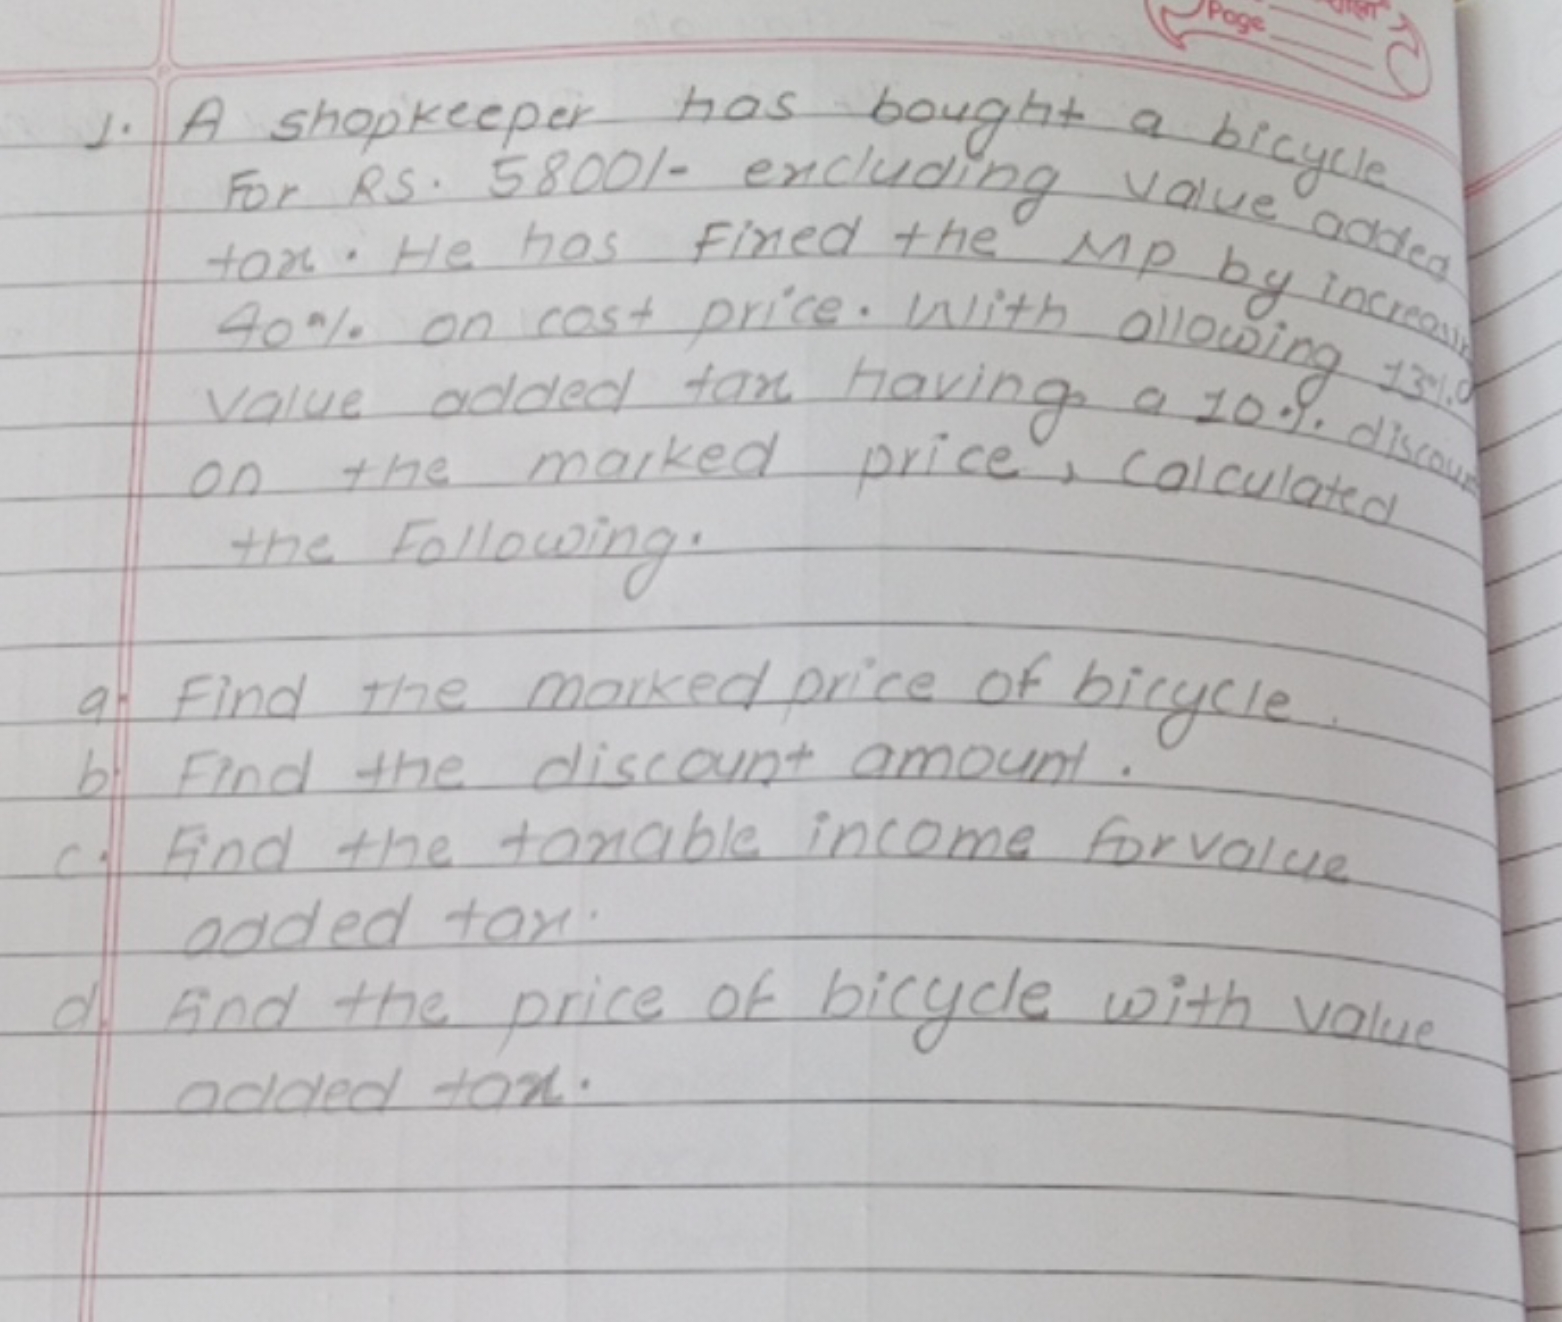 Page
1. A shopkeeper has bought a bicycle
For RS. 5800/- excluding value added
tax. He has Fixed the MP by increasin
40% on cost price. With allowing 13%
value added tax having a 10% discoun
on the marked price, calculated
the Following.
a. Find the marked price of bicycle.
b. Find the discount amount.
c. Find the taxable income for value
added tax.
d. Find the price of bicycle with value
added tax.